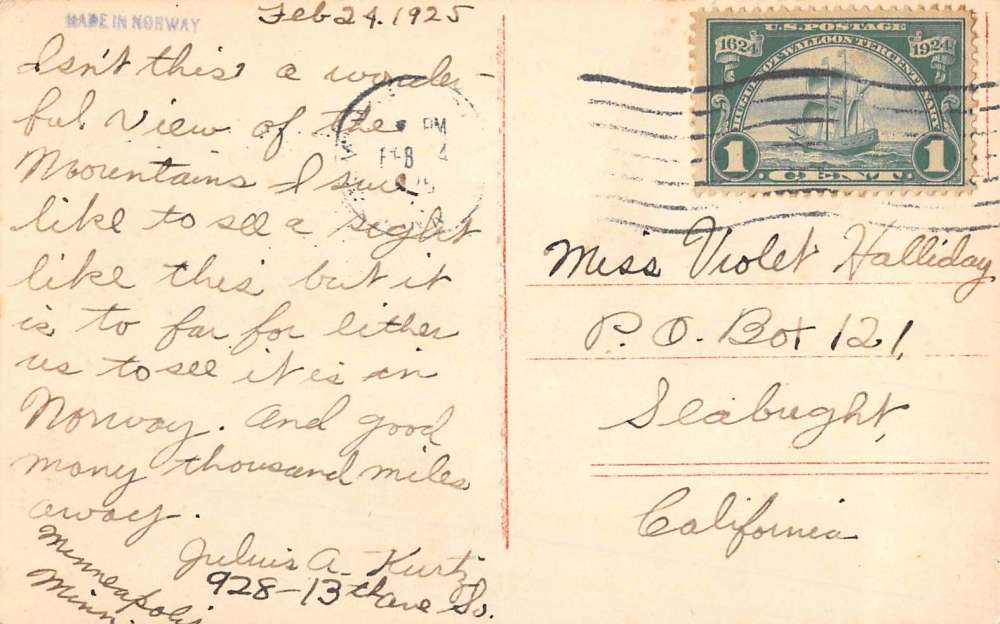 MADE IN NORWAY
Feb 24. 1925
Isn't this a wonder-
ful view of the
Moorentains I sure
like to see a sight
like this but it
is to far for either
us to see it is in
Norway. And good
many thousand miles
away.
Julius A. Kurtz
928-13th ave So.
Minneapolis
Minn.
PM
FEB 4
U.S. POSTAGE
1624 1924
HUGUENOT-WALLOON TERCENTENARY
1 CENT 1
Miss Violet Halliday
P. O. Box 121,
Seabright,
California